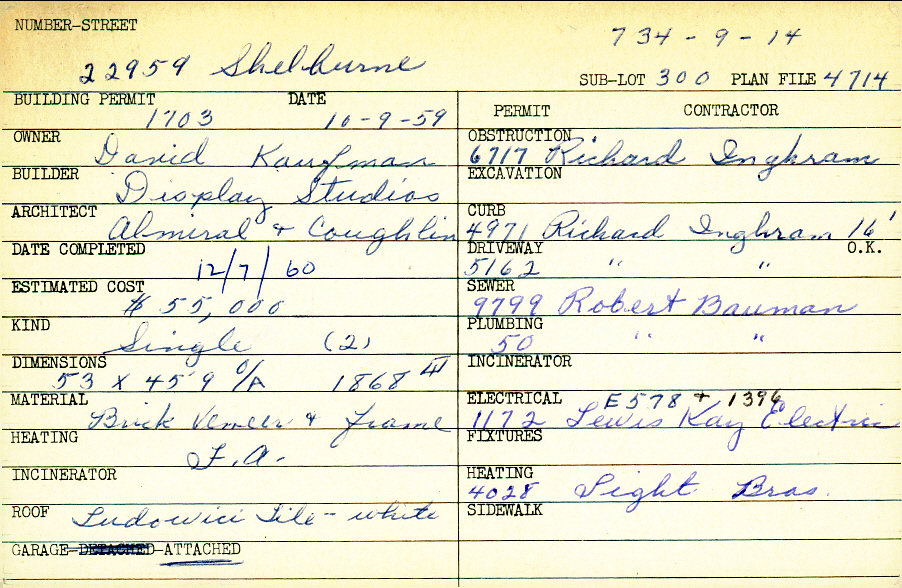 NUMBER-STREET
734-9-14
22959 Shelburne
SUB-LOT 300 PLAN FILE 4714
BUILDING PERMIT DATE
1703 10-9-59
OWNER
David Kaufman
BUILDER
Display Studios
ARCHITECT
Almiral & Coughlin
DATE COMPLETED
12/7/60
ESTIMATED COST
$55,000
KIND
Single (2)
DIMENSIONS
53 X 45'9 O/A 1868
MATERIAL
Brick Veneer & Frame
HEATING
F.A.
INCINERATOR
ROOF Ludowici Tile - white
GARAGE-DETACHED-ATTACHED
PERMIT CONTRACTOR
OBSTRUCTION
6717 Richard Inghram
EXCAVATION
CURB
4971 Richard Inghram 16'
DRIVEWAY O.K.
5162 " "
SEWER
9799 Robert Bauman
PLUMBING
50 " "
INCINERATOR
ELECTRICAL E578 + 1396
1172 Lewis Kay Electric
FIXTURES
HEATING
4028 Sight Bros.
SIDEWALK